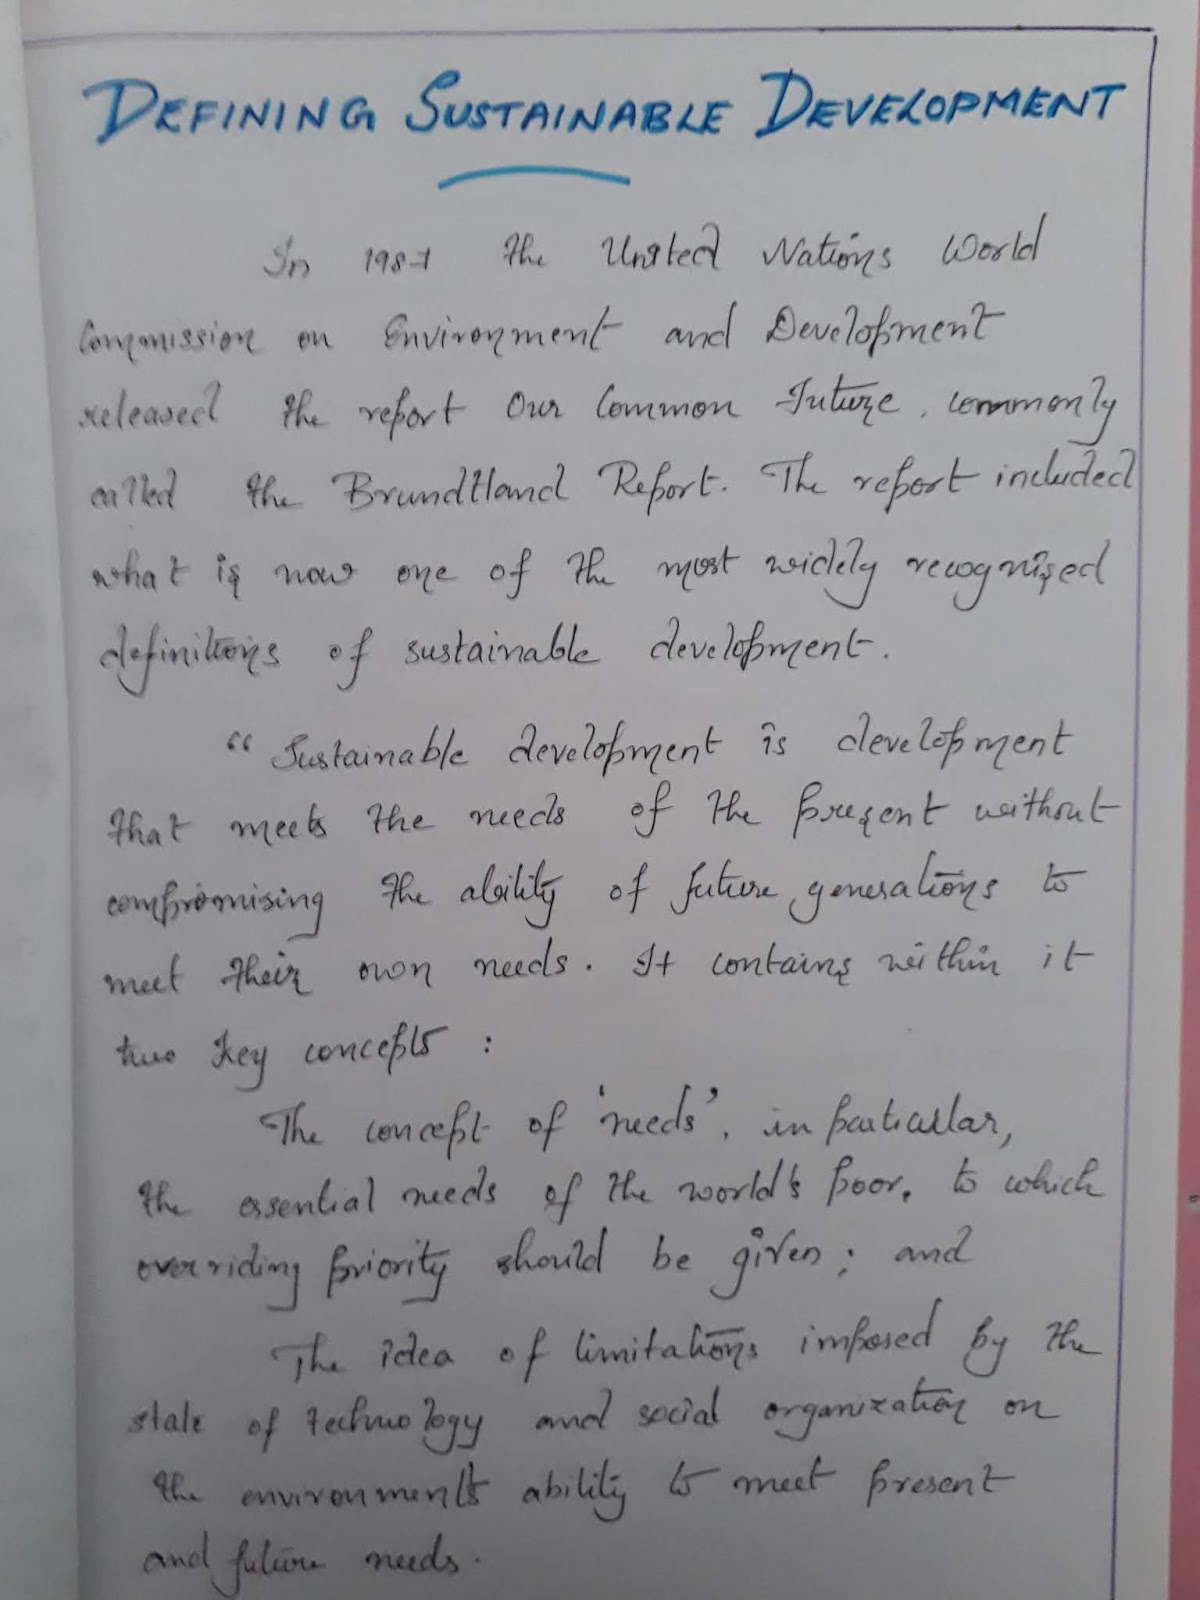 DEFINING SUSTAINABLE DEVELOPMENT
In 1987 the United Nations World
Commission on Environment and Development
released the report Our Common Future, commonly
called the Brundtland Report. The report included
what is now one of the most widely recognised
definitions of sustainable development.
"Sustainable development is development
that meets the needs of the present without
compromising the ability of future generations to
meet their own needs. It contains within it
two key concepts :
The concept of 'needs', in particular,
the essential needs of the world's poor, to which
overriding priority should be given; and
The idea of limitations imposed by the
state of technology and social organization on
the environment's ability to meet present
and future needs.